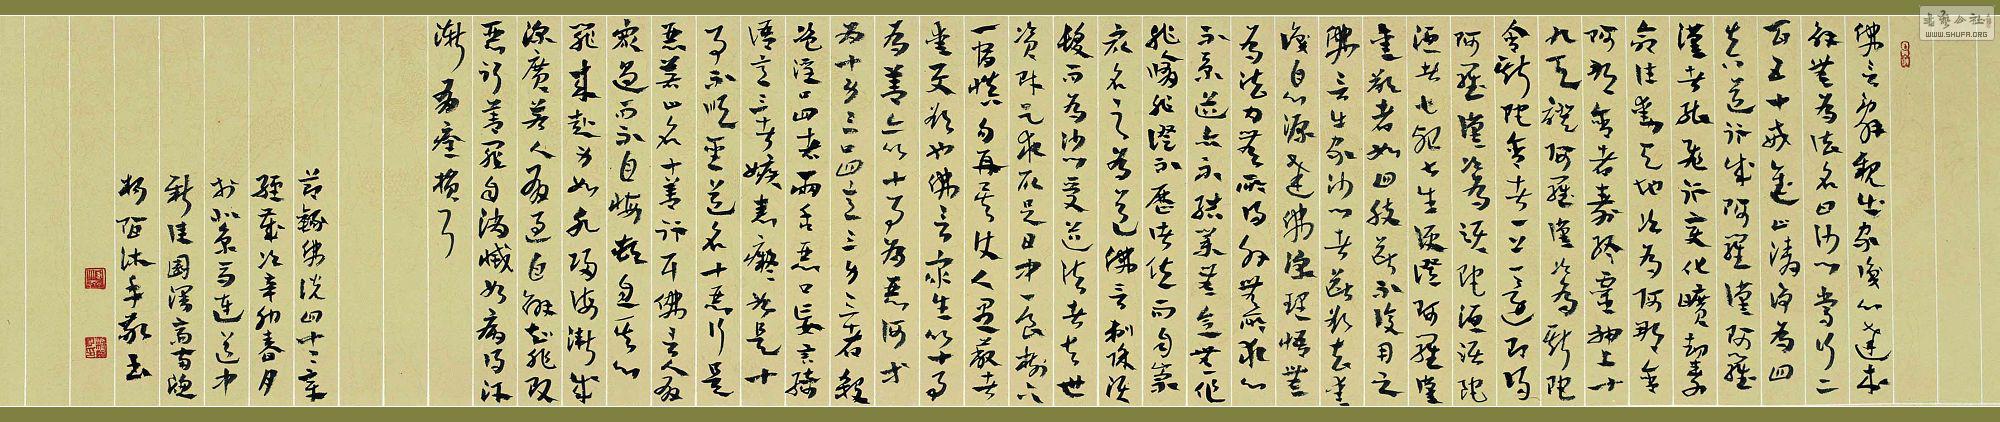 佛言辭親出家識心達本
解無為法名曰沙門常行二
百五十戒進止清淨為四
真道行成阿羅漢阿羅
漢者能飛行變化曠劫壽
命住動天地次為阿那含
阿那含者壽終靈神上十
九天證阿羅漢次為斯陀
含斯陀含者一上一還即得
阿羅漢次為須陀洹須陀
洹者七死七生便證阿羅漢
愛欲者如四肢斷不復用之
佛言出家沙門者斷欲去愛
識自心源達佛深理悟無
為法內無所得外無所求心
不系道亦不結業無念無作
非修非證不歷諸位而自崇
最名之為道佛言剃除須
髮而為沙門受道法者去世
資財乞求取足日中一食樹下
一宿慎勿再矣使人愚蔽者
愛與欲也佛言眾生以十事
為善亦以十事為惡何等
為十身三口四意三身三者殺
盜淫口四者兩舌惡口妄言綺
語意三者嫉恚癡如是十
事不順聖道名十惡行是
惡若止名十善行耳佛言人有
眾過而不自悔頓息其心
罪來赴身如水歸海漸成
深廣若人有過自解知非改
惡行善罪自消滅如病得汗
漸有痊損耳
節錄佛說四十二章
經歲次辛卯春月
於北京馬連道中
新佳園
沐手敬書
WWW.SHUFA.ORG